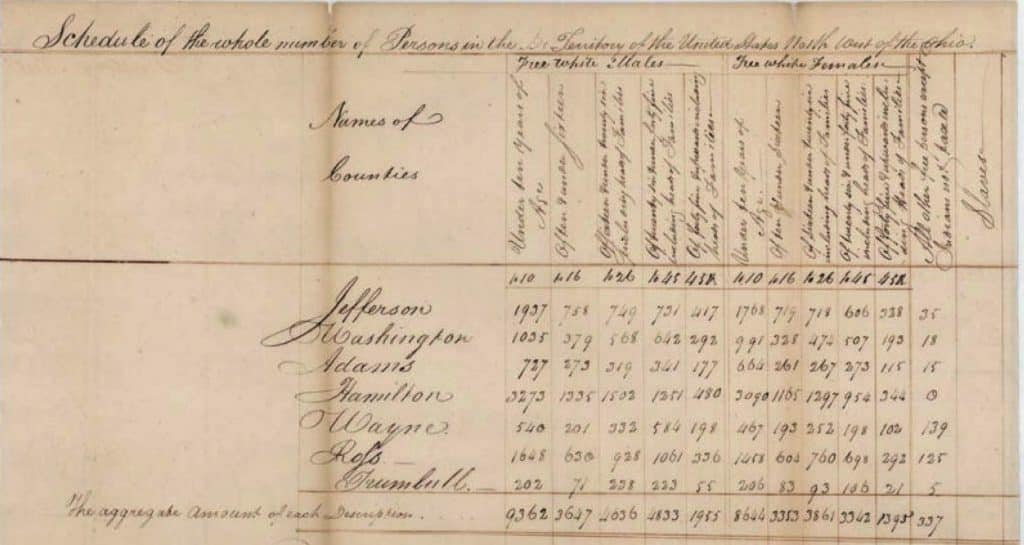 Schedule of the whole number of Persons in the Territory of the United States North West of the Ohio.
Free white Males Free white Females
Names of
Counties
Under ten years of Age
Of ten & under sixteen
Of sixteen & under twenty six including heads of Families
Of twenty six & under forty five including heads of Families
Of forty five & upwards including heads of Families
Under ten Years of Age
Of ten & under Sixteen
Of sixteen & under twenty six including heads of Families
Of twenty six & under forty five including heads of Families
Of forty five & upwards including heads of Families
All other free persons except Indians not taxed
Slaves
to 10 to 16 to 26 to 45 45 & to 10 to 16 to 26 to 45 45 &
Jefferson 1937 758 749 731 417 1768 719 718 606 328 35
Washington 1035 379 568 642 292 991 328 474 507 193 18
Adams 727 273 319 341 177 664 261 267 273 115 15
Hamilton 3273 1335 1502 1251 480 3090 1165 1297 954 344 0
Wayne. 540 201 332 584 198 467 193 252 198 102 139
Ross 1648 630 928 1061 336 1458 604 760 698 292 125
Trumbull. 202 71 238 223 55 206 83 93 106 21 5
The aggregate amount of each Description 9362 3647 4636 4833 1955 8644 3353 3861 3342 1395 337